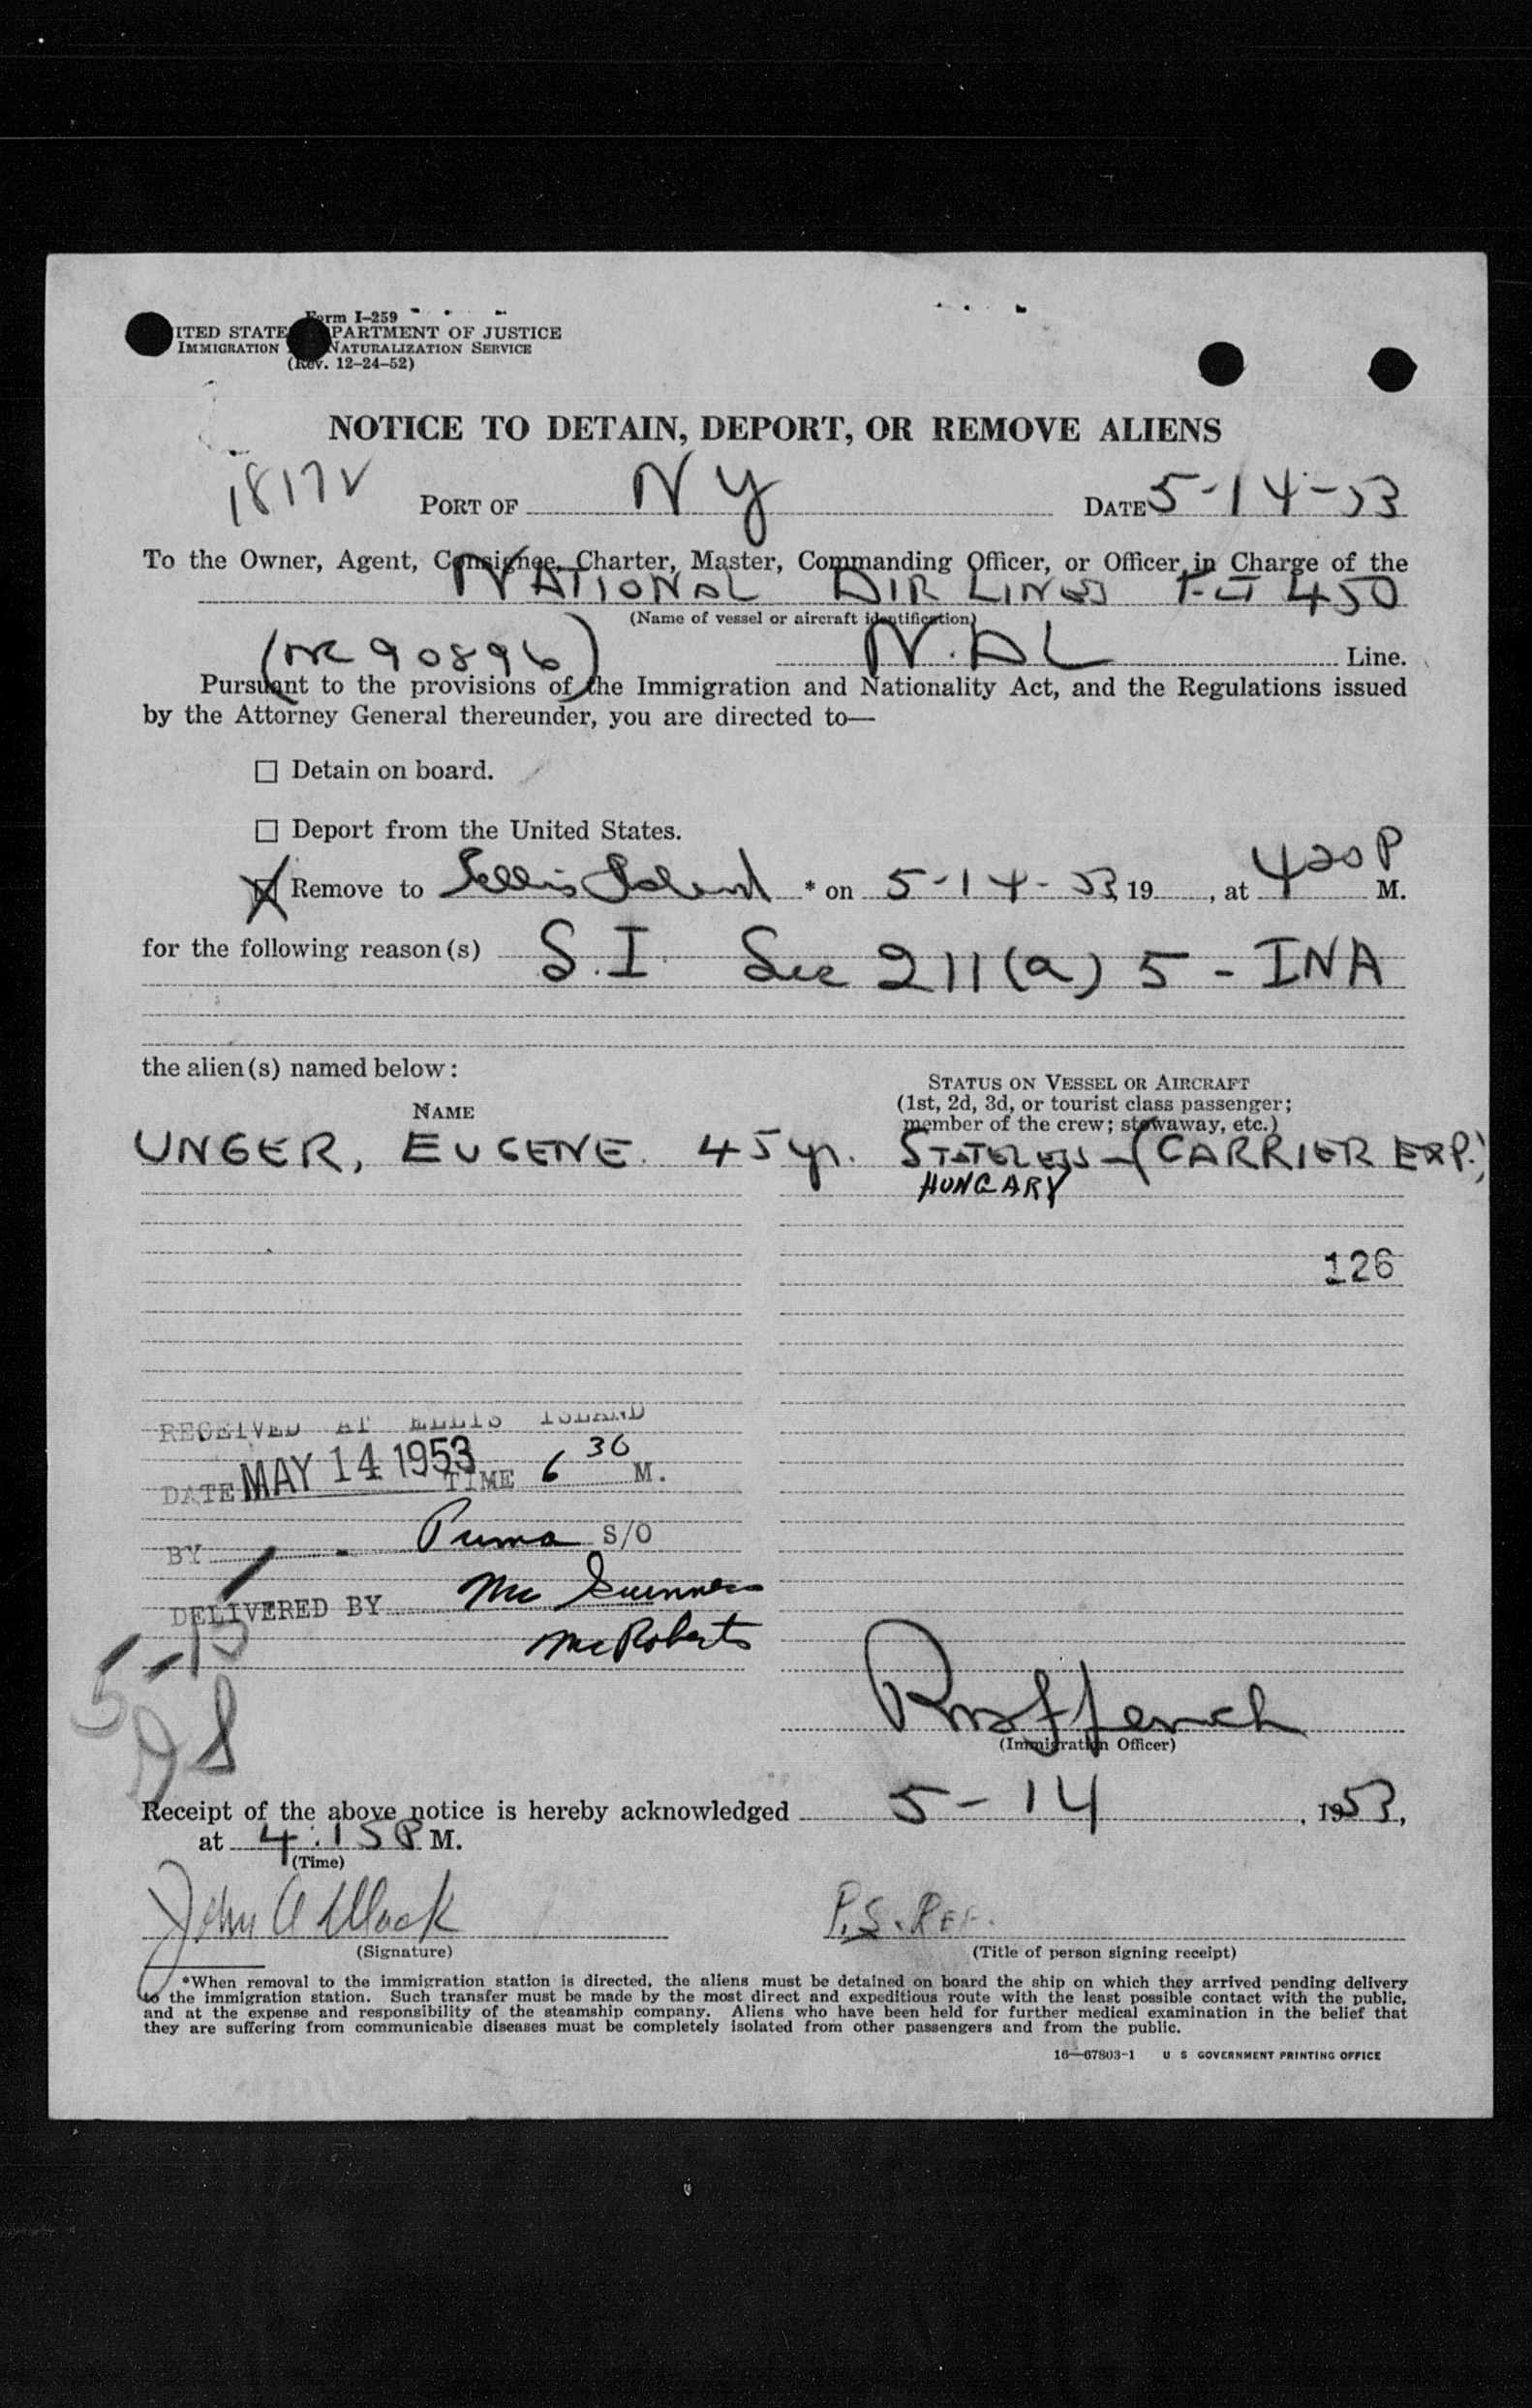 Form I-259
ITED STATE PARTMENT OF JUSTICE
IMMIGRATION NATURALIZATION SERVICE
(Rev. 12-24-52)
NOTICE TO DETAIN, DEPORT, OR REMOVE ALIENS
1817V
PORT OF NY DATE 5-14-53
To the Owner, Agent, Consignee, Charter, Master, Commanding Officer, or Officer in Charge of the
NATIONAL AIR LINES FLT 450
(Name of vessel or aircraft identification)
90896) N.AL Line.
Pursuant to the provisions of the Immigration and Nationality Act, and the Regulations issued
by the Attorney General thereunder, you are directed to—
☐ Detain on board.
☐ Deport from the United States.
☒ Remove to Ellis Island * on 5-14-53, 19 , at 420 P M.
for the following reason(s) S.I. Sec 211(a) 5 - INA
the alien(s) named below:
NAME
STATUS ON VESSEL OR AIRCRAFT
(1st, 2d, 3d, or tourist class passenger;
member of the crew; stowaway, etc.)
UNGER, EUGENE. 45 yr. STATELESS - (CARRIER EXP.)
HUNGARY
126
RECEIVED AT ELLIS ISLAND
DATE MAY 14 1953 TIME 6 30 M.
BY Puma S/O
DELIVERED BY Mc Guinness
McRoberts
5-15
(Immigration Officer)
Receipt of the above notice is hereby acknowledged 5-14, 1953,
at 4:15 P M.
(Time)
John A P.S. REP.
(Signature) (Title of person signing receipt)
*When removal to the immigration station is directed, the aliens must be detained on board the ship on which they arrived pending delivery
to the immigration station. Such transfer must be made by the most direct and expeditious route with the least possible contact with the public,
and at the expense and responsibility of the steamship company. Aliens who have been held for further medical examination in the belief that
they are suffering from communicable diseases must be completely isolated from other passengers and from the public.
16—67803-1 U S GOVERNMENT PRINTING OFFICE